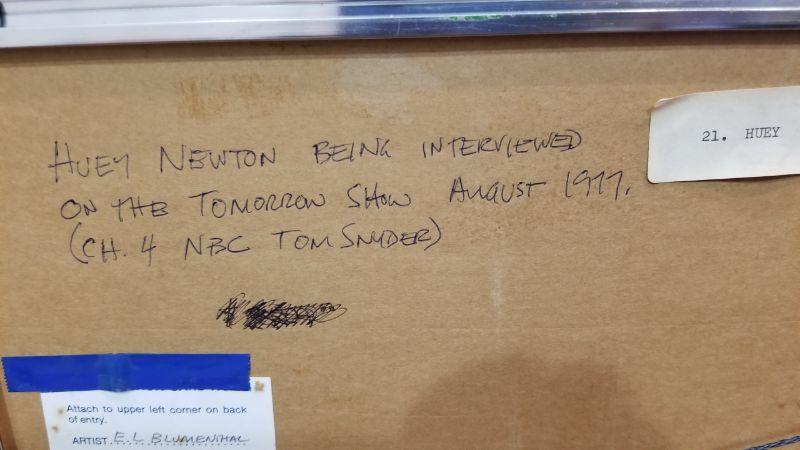 HUEY NEWTON BEING INTERVIEWED
ON THE TOMORROW SHOW AUGUST 1977.
(CH. 4 NBC TOM SNYDER)
21. HUEY
Attach to upper left corner on back
of entry.
ARTIST E.L BLUMENTHAL